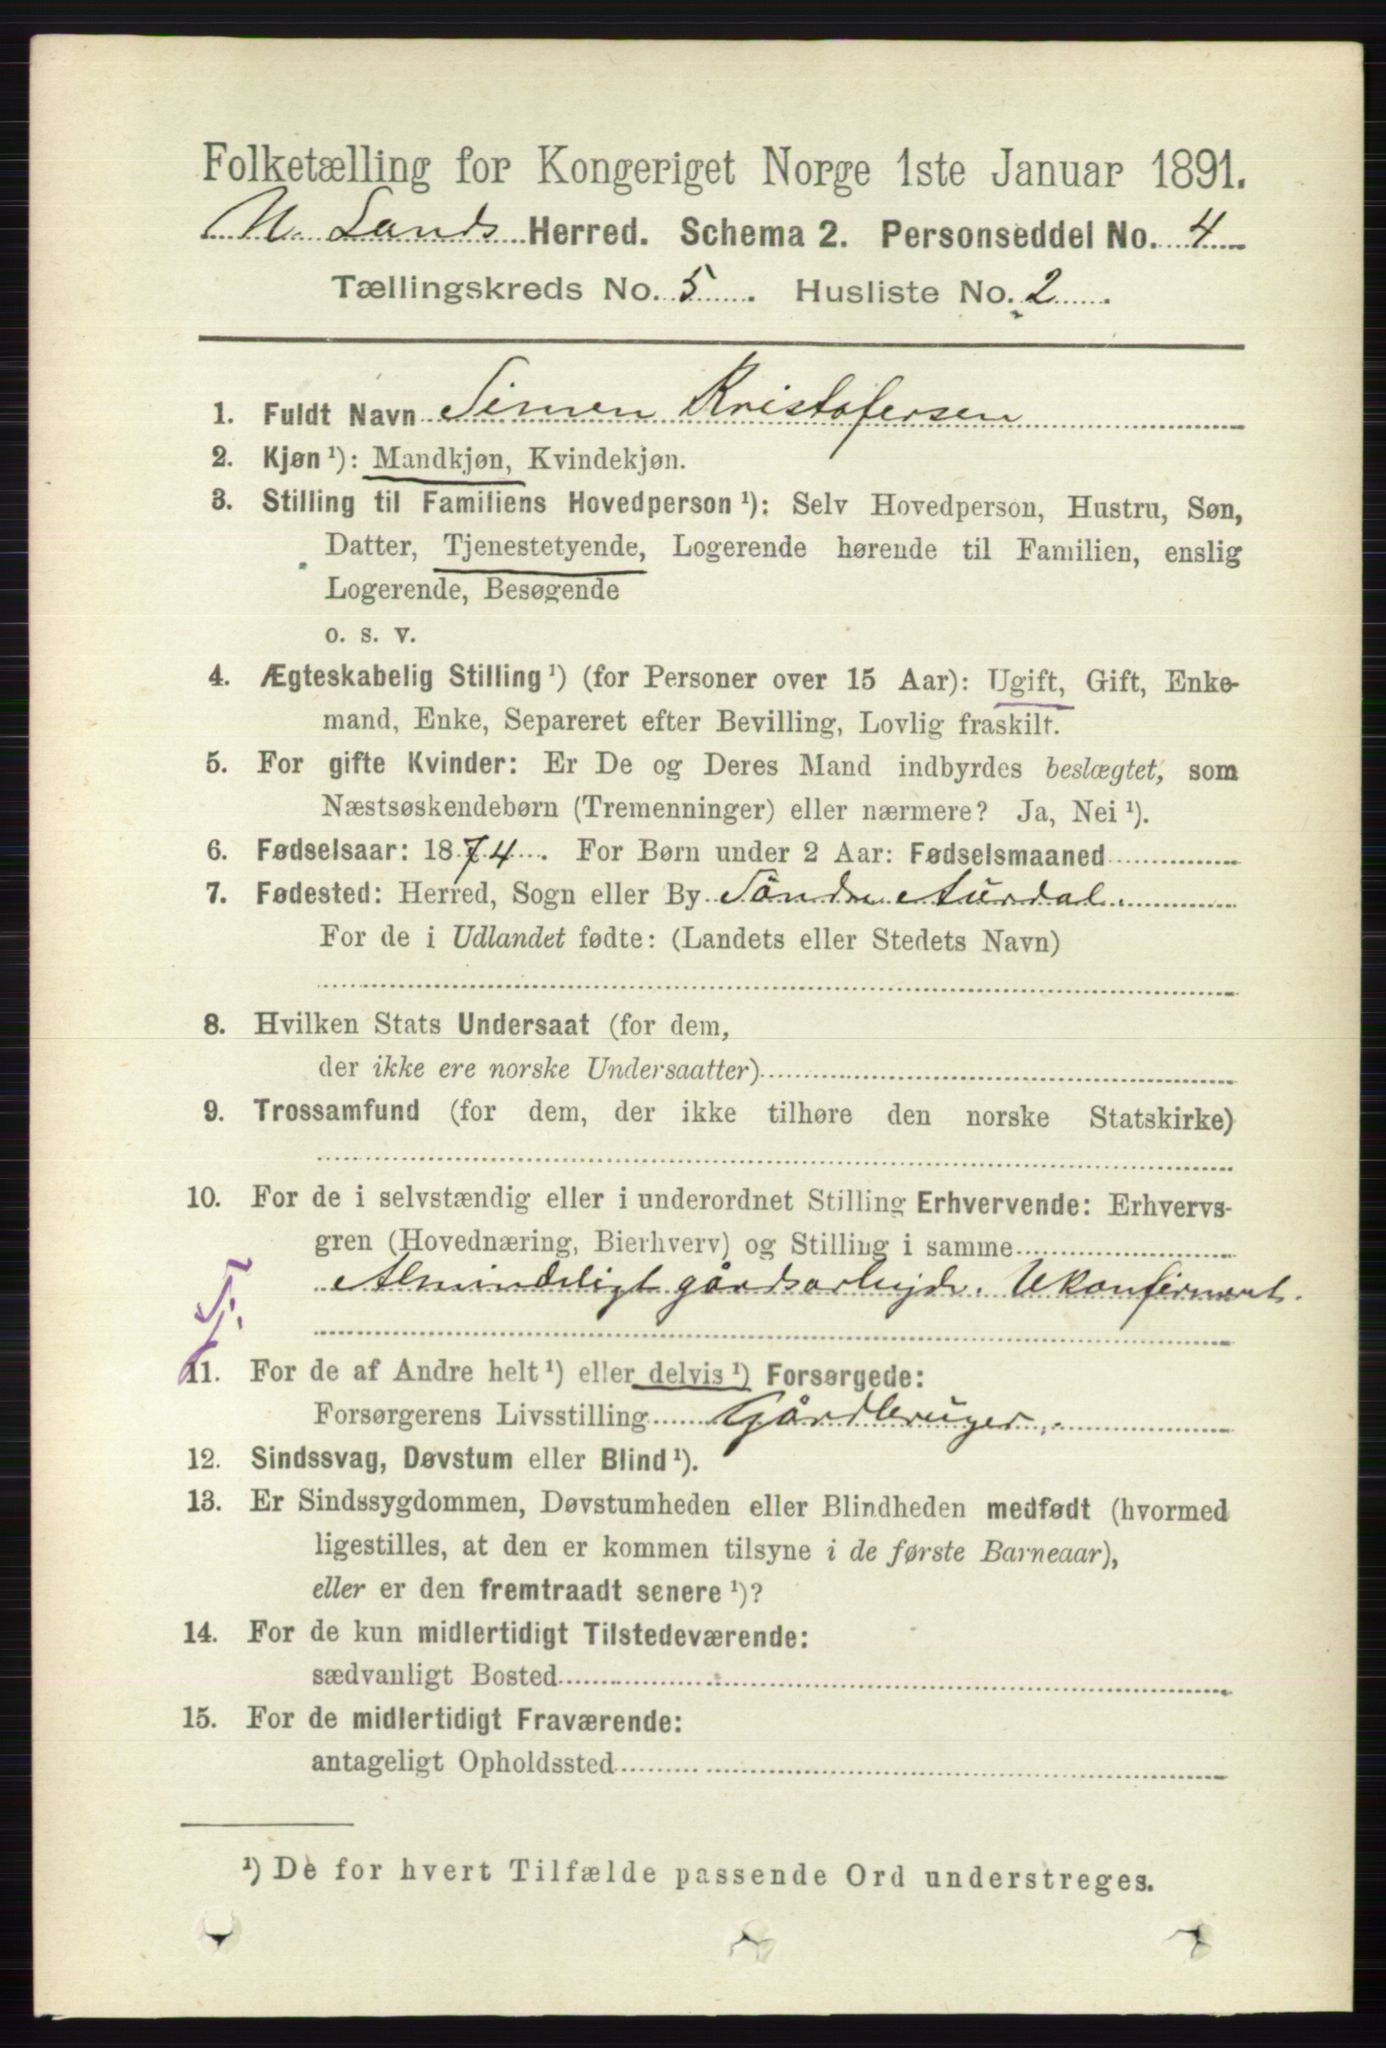 Folketælling for Kongeriget Norge 1ste Januar 1891.
N. Lands Herred. Schema 2. Personseddel No. 4
Tællingskreds No. 5. Husliste No. 2.
1. Fuldt Navn Simen Kristofersen
2. Kjøn ¹): Mandkjøn, Kvindekjøn.
3. Stilling til Familiens Hovedperson ¹): Selv Hovedperson, Hustru, Søn,
Datter, Tjenestetyende, Logerende hørende til Familien, enslig
Logerende, Besøgende
o. s. v.
4. Ægteskabelig Stilling ¹) (for Personer over 15 Aar): Ugift, Gift, Enke-
mand, Enke, Separeret efter Bevilling, Lovlig fraskilt.
5. For gifte Kvinder: Er De og Deres Mand indbyrdes beslægtet, som
Næstsøskendebørn (Tremenninger) eller nærmere? Ja, Nei ¹).
6. Fødselsaar: 1874. For Børn under 2 Aar: Fødselsmaaned
7. Fødested: Herred, Sogn eller By Söndre Aurdal.
For de i Udlandet fødte: (Landets eller Stedets Navn)
8. Hvilken Stats Undersaat (for dem,
der ikke ere norske Undersaatter)
9. Trossamfund (for dem, der ikke tilhøre den norske Statskirke)
10. For de i selvstændig eller i underordnet Stilling Erhvervende: Erhvervs-
gren (Hovednæring, Bierhverv) og Stilling i samme
Almindeligt gårdsarbejde. Ukonfirmert.
F.
11. For de af Andre helt ¹) eller delvis ¹) Forsørgede:
Forsørgerens Livsstilling Gårdbruger.
12. Sindssvag, Døvstum eller Blind ¹).
13. Er Sindssygdommen, Døvstumheden eller Blindheden medfødt (hvormed
ligestilles, at den er kommen tilsyne i de første Barneaar),
eller er den fremtraadt senere ¹)?
14. For de kun midlertidigt Tilstedeværende:
sædvanligt Bosted
15. For de midlertidigt Fraværende:
antageligt Opholdssted
¹) De for hvert Tilfælde passende Ord understreges.